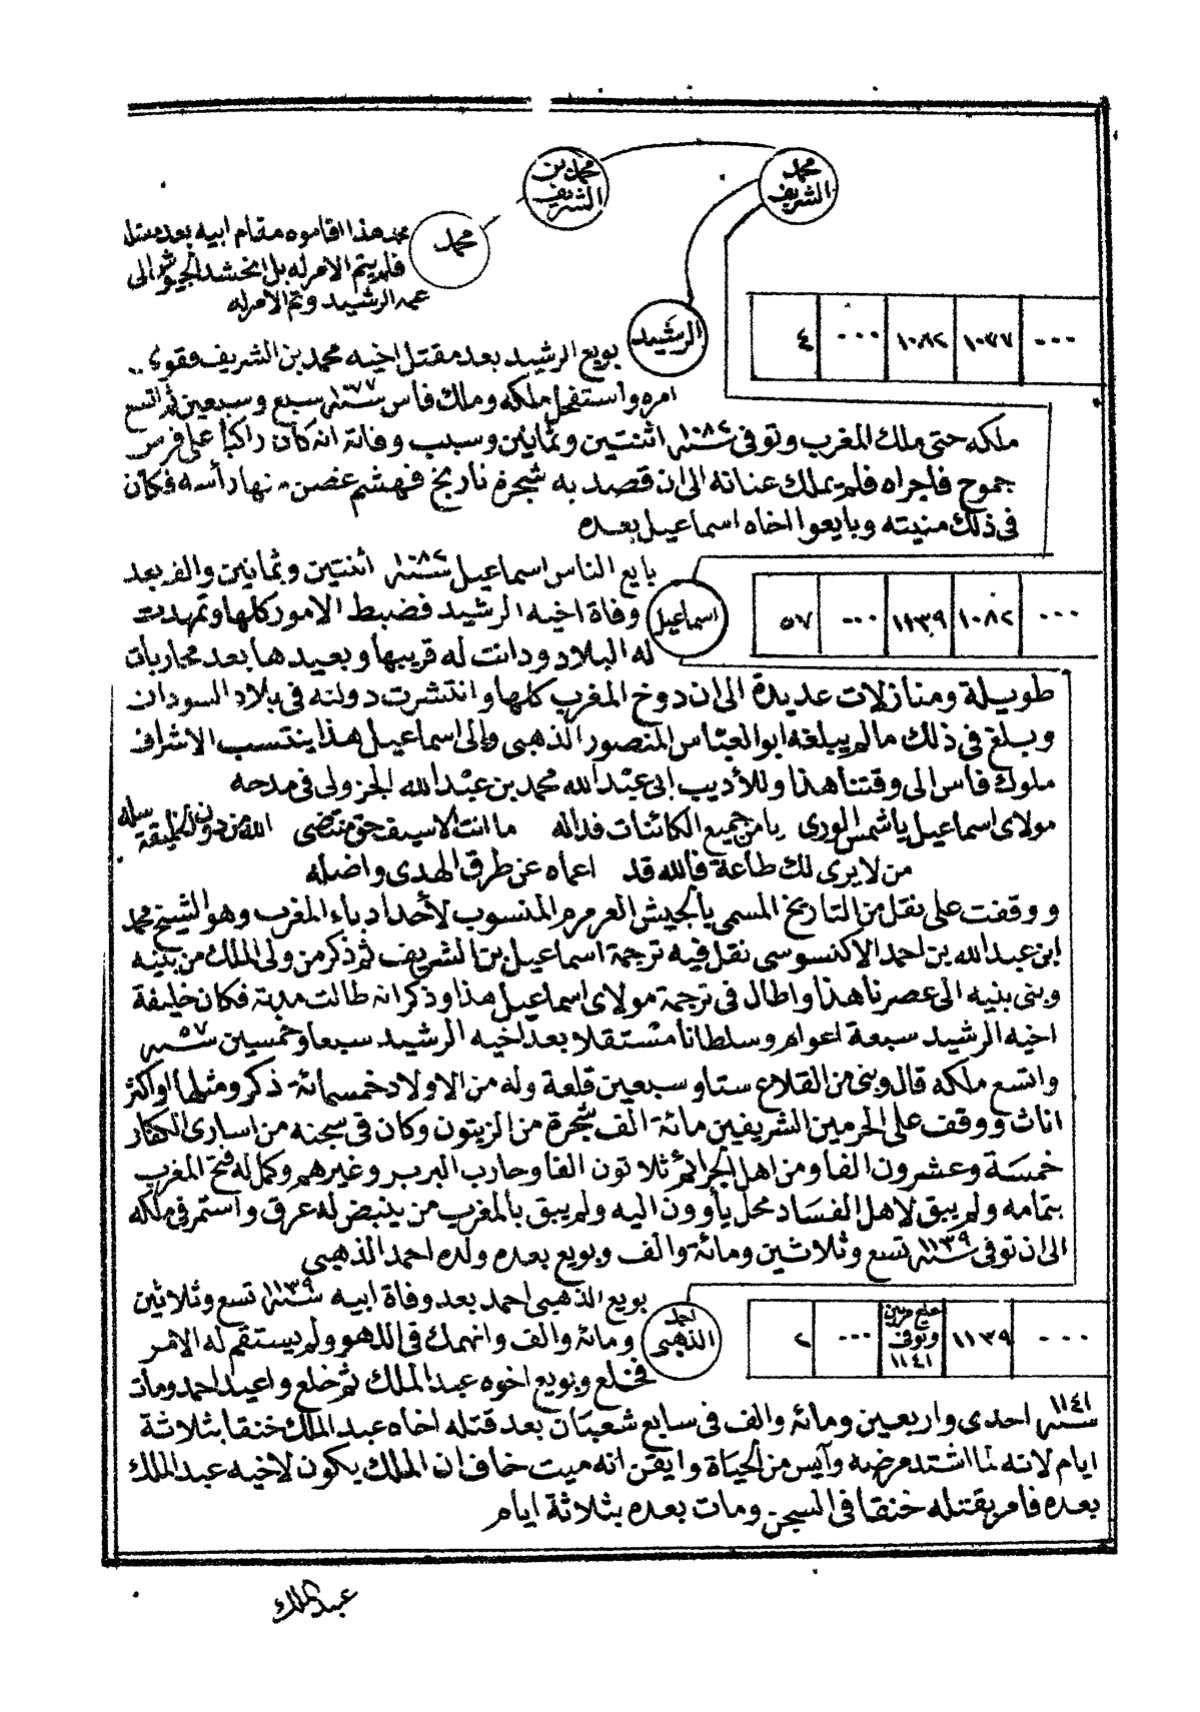 محمد الشريف
محمد بن الشريف
محمد
محمد هذا اقاموه مقام ابيه بعد مقتل
فلم يتم الامر له بل انحشد الجيوش الى
عمه الرشيد وتم الامر له
... ١٠٧٧ ١٠٨٢ ... ٤
الرشيد
بويع الرشيد بعد مقتل اخيه محمد بن الشريف فقوى
امره واستفحل ملكه وملك فاس سنة ١٠٧٧ سبع وسبعين ثم اتسع
ملكه حتى ملك المغرب وتوفى سنة ١٠٨٢ اثنتين وثمانين وسبب وفاته انه كان راكبا على فرس
جموح فاجراه فلم يملك عنانه الى ان قصد به شجرة نارنج فهشم غصن منها رأسه فكان
فى ذلك منيته وبايعوا اخاه اسماعيل بعده
بايع الناس اسماعيل سنة ١٠٨٢ اثنتين وثمانين والف بعد
... ١٠٨٢ ١١٣٩ ... ٥٧
اسماعيل
وفاة اخيه الرشيد فضبط الامور كلها وتمهدت
له البلاد ودانت له قريبها وبعيدها بعد محاربات
طويلة ومنازلات عديدة الى ان دوخ المغرب كلها وانتشرت دولته فى بلاد السودان
وبلغ فى ذلك مالم يبلغه ابو العباس المنصور الذهبى والى اسماعيل هذا ينتسب الاشراف
ملوك فاس الى وقتنا هذا وللأديب ابى عبد الله محمد بن عبد الله الجزولى فى مدحه
مولاى اسماعيل يا شمس الورى يا من جميع الكائنات فدا له ما انت الا سيف حق منتضى الله من دون الخليقة سله
من لا يرى لك طاعة فالله قد اعماه عن طرق الهدى واضله
ووقفت على نقل من التاريخ المسمى بالجيش العرمرم المنسوب لأحد ادباء المغرب وهو الشيخ محمد
ابن عبد الله بن احمد الاكنسوسى نقل فيه ترجمة اسماعيل بن الشريف ثم ذكر من ولى الملك من بنيه
وبنى بنيه الى عصرنا هذا واطال فى ترجمة مولاى اسماعيل هذا وذكر انه طالت مدته فكان خليفة
اخيه الرشيد سبعة اعوام وسلطانا مستقلا بعد اخيه الرشيد سبعا وخمسين سنة ٥٧
واتسع ملكه قال وبنى من القلاع ستا وسبعين قلعة وله من الاولاد خمسمائة ذكر ومثلها او اكثر
اناث ووقف على الحرمين الشريفين مائة الف شجرة من الزيتون وكان فى سجنه من اسارى الكفار
خمسة وعشرون الفا ومن اهل الجرائم ثلاثون الفا وحارب البربر وغيرهم وكمل له فتح المغرب
بتمامه ولم يبق لاهل الفساد محل يأوون اليه ولم يبق بالمغرب من ينبض له عرق واستمر فى ملكه
الى ان توفى سنة ١١٣٩ تسع وثلاثين ومائة والف وبويع بعده ولده احمد الذهبى
بويع الذهبى احمد بعد وفاة ابيه سنة ١١٣٩ تسع وثلاثين
... ١١٣٩ خلع مرتين وتوفى ١١٤١ ... ٢
احمد الذهبى
ومائة والف وانهمك فى اللهو ولم يستقم له الامر
فخلع وبويع اخوه عبد الملك ثم خلع واعيد احمد ومات
سنة ١١٤١ احدى واربعين ومائة والف فى سابع شعبان بعد قتله اخاه عبد الملك خنقا بثلاثة
ايام لانه لما اشتد مرضه وآيس من الحياة وايقن انه ميت خاف ان الملك يكون لاخيه عبد الملك
بعده فامر بقتله خنقا فى السجن ومات بعده بثلاثة ايام
عبد الملك